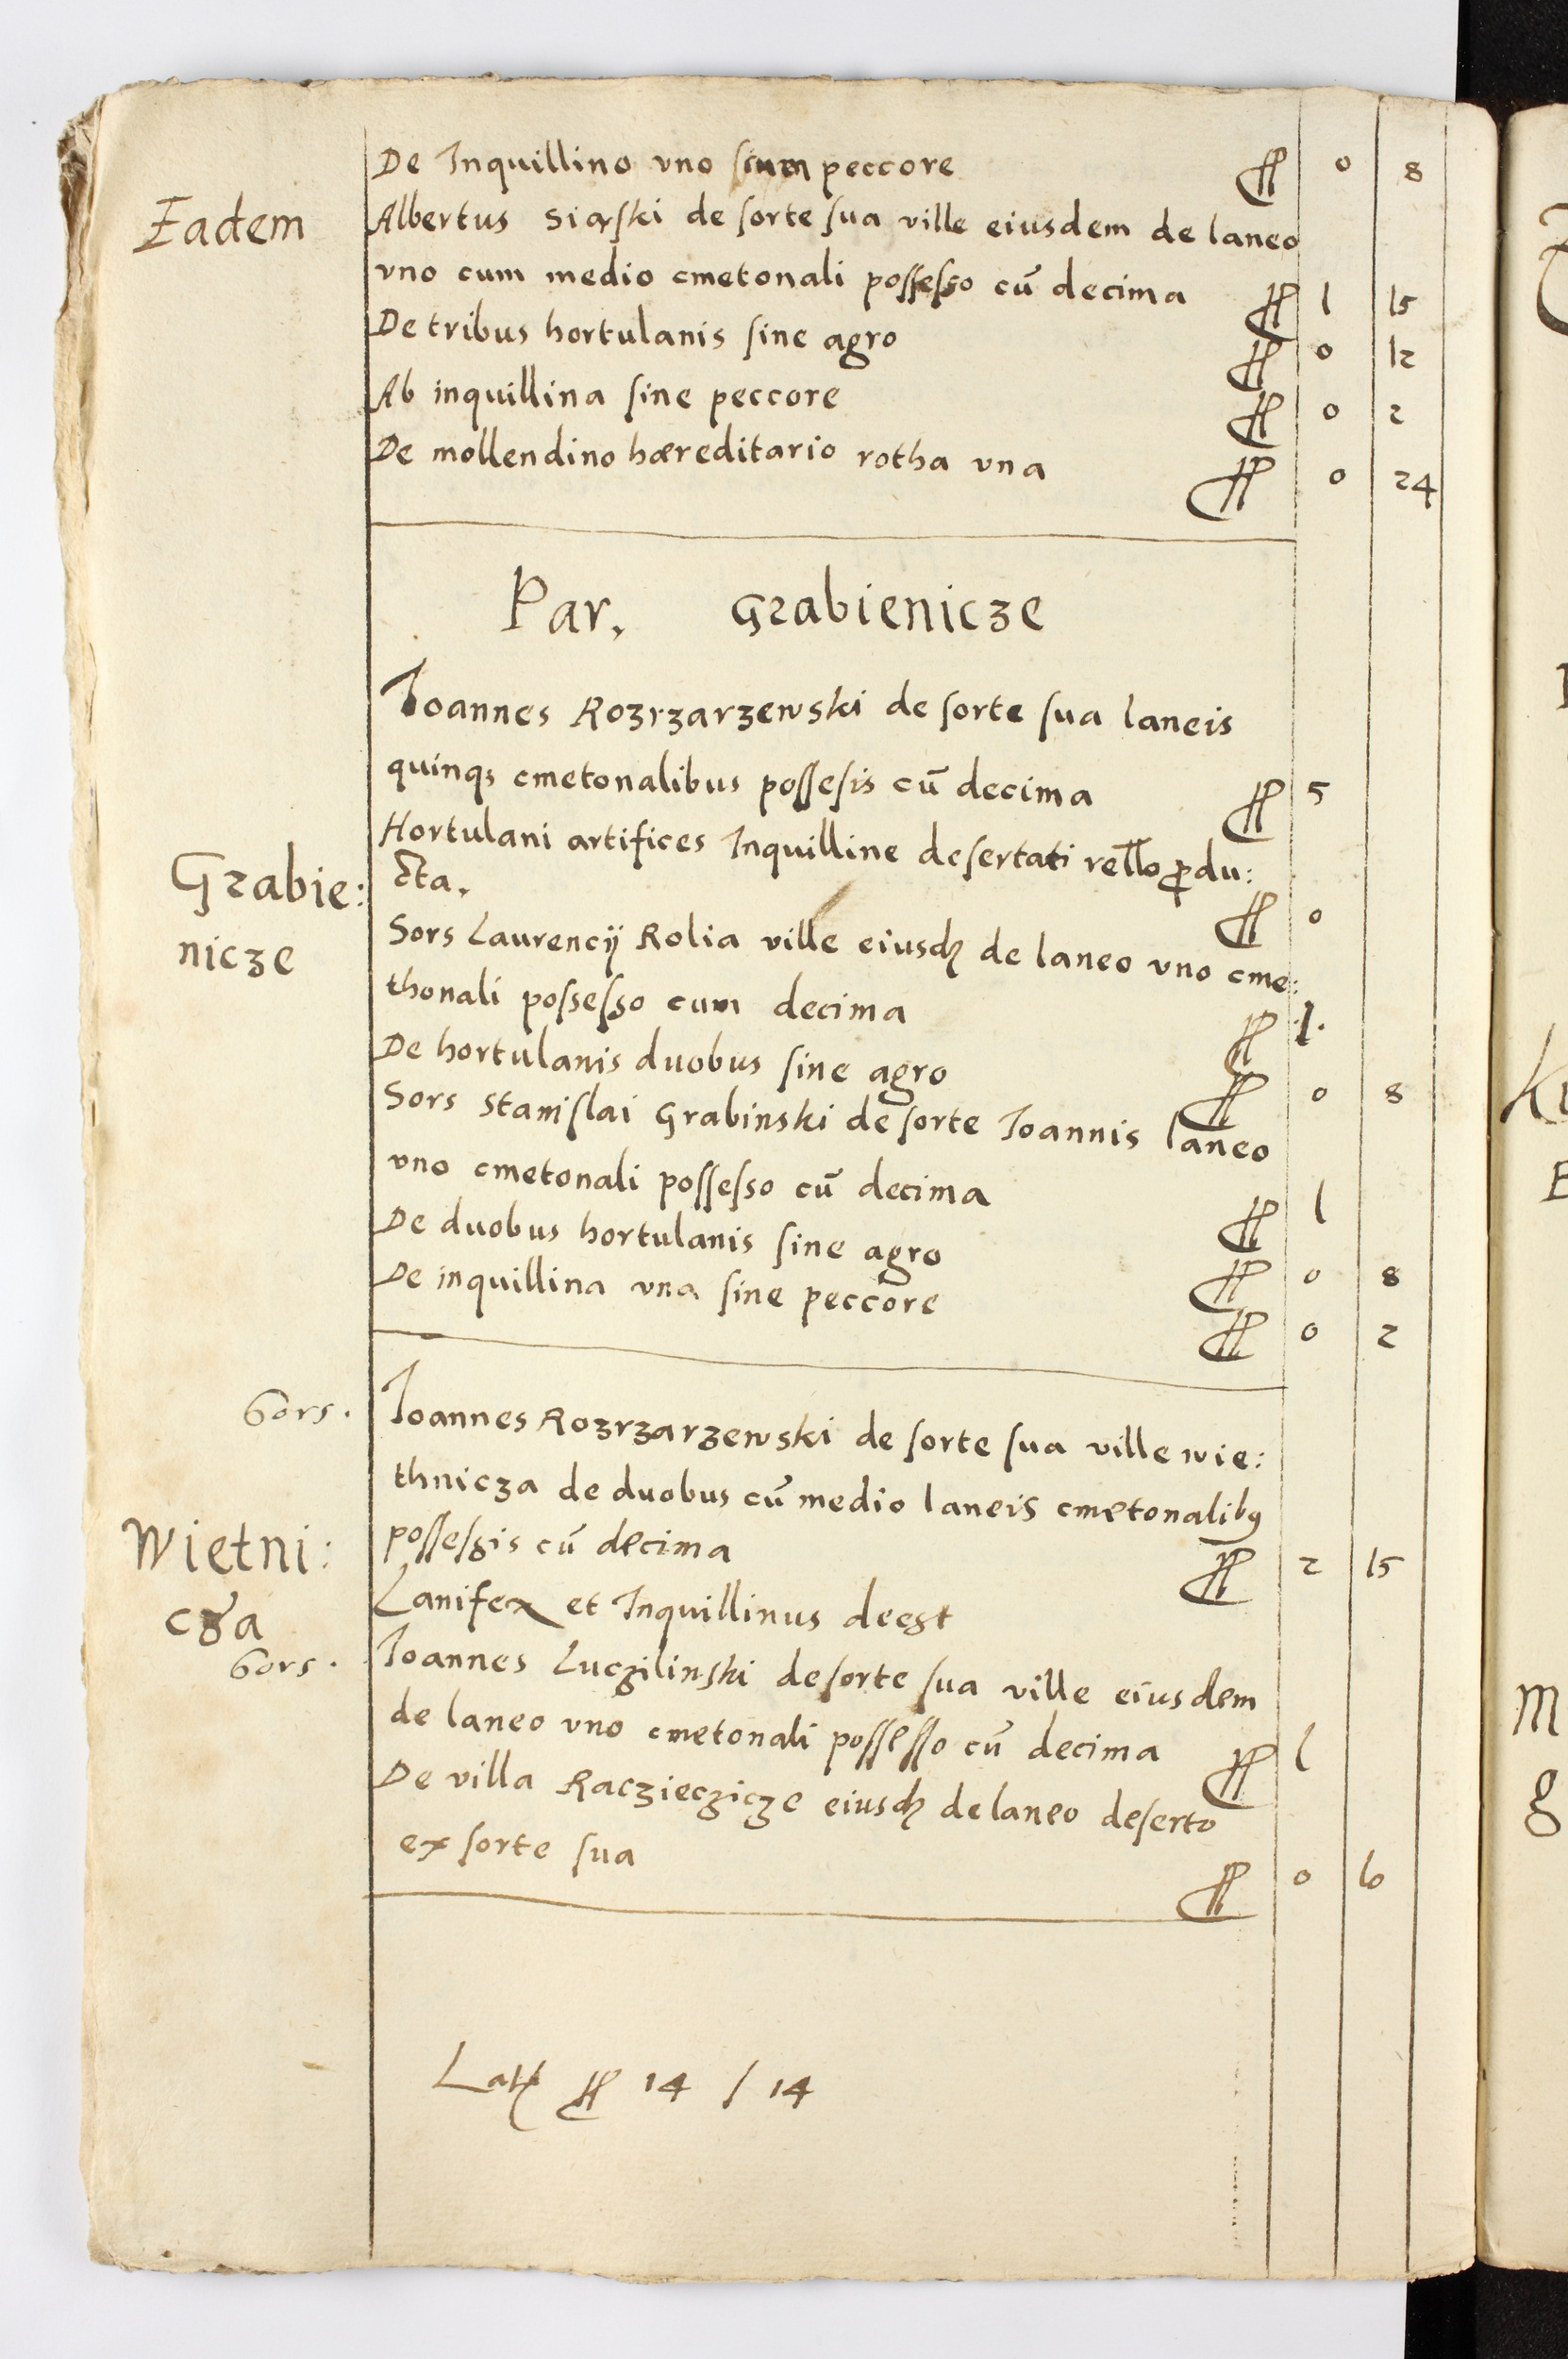 De Inquillino vno cum peccore ff 0 8
Eadem
Albertus Siarski de sorte sua ville eiusdem de laneo
vno cum medio cmetonali possesso cū decima ff 1 15
De tribus hortulanis sine agro ff 0 12
Ab inquillina sine peccore ff 0 2
De mollendino hæreditario rotha vna ff 0 24
Par. Grabienicze
Joannes Rozrzarzewski de sorte sua laneis
quinqꝫ cmetonalibus possesis cū decima ff 5
Grabie:
nicze
Hortulani artifices Inquilline desertati rello ꝓdu:
cta. ff 0
Sors Laurencij Rolia ville eiusdꝫ de laneo vno cme:
thonali possesso cum decima ff 1.
De hortulanis duobus sine agro ff 0 8
Sors Stanislai Grabinski de sorte Joannis laneo
vno cmetonali possesso cū decima ff 1
De duobus hortulanis sine agro ff 0 8
De inquillina vna sine peccore ff 0 2
Sors.
Joannes Rozrzarzewski de sorte sua ville wie:
thnicza de duobus cū medio laneis cmetonalibꝰ
possessis cū decima ff 2 15
Wietni:
cza
Lanifex et Inquillinus deest
Sors.
Joannes Luczilinski de sorte sua ville eiusdem
de laneo vno cmetonali possesso cū decima ff 1
De villa Raczieczicze eiusdꝫ de laneo deserto
ex sorte sua ff 0 6
ff 14 / 14